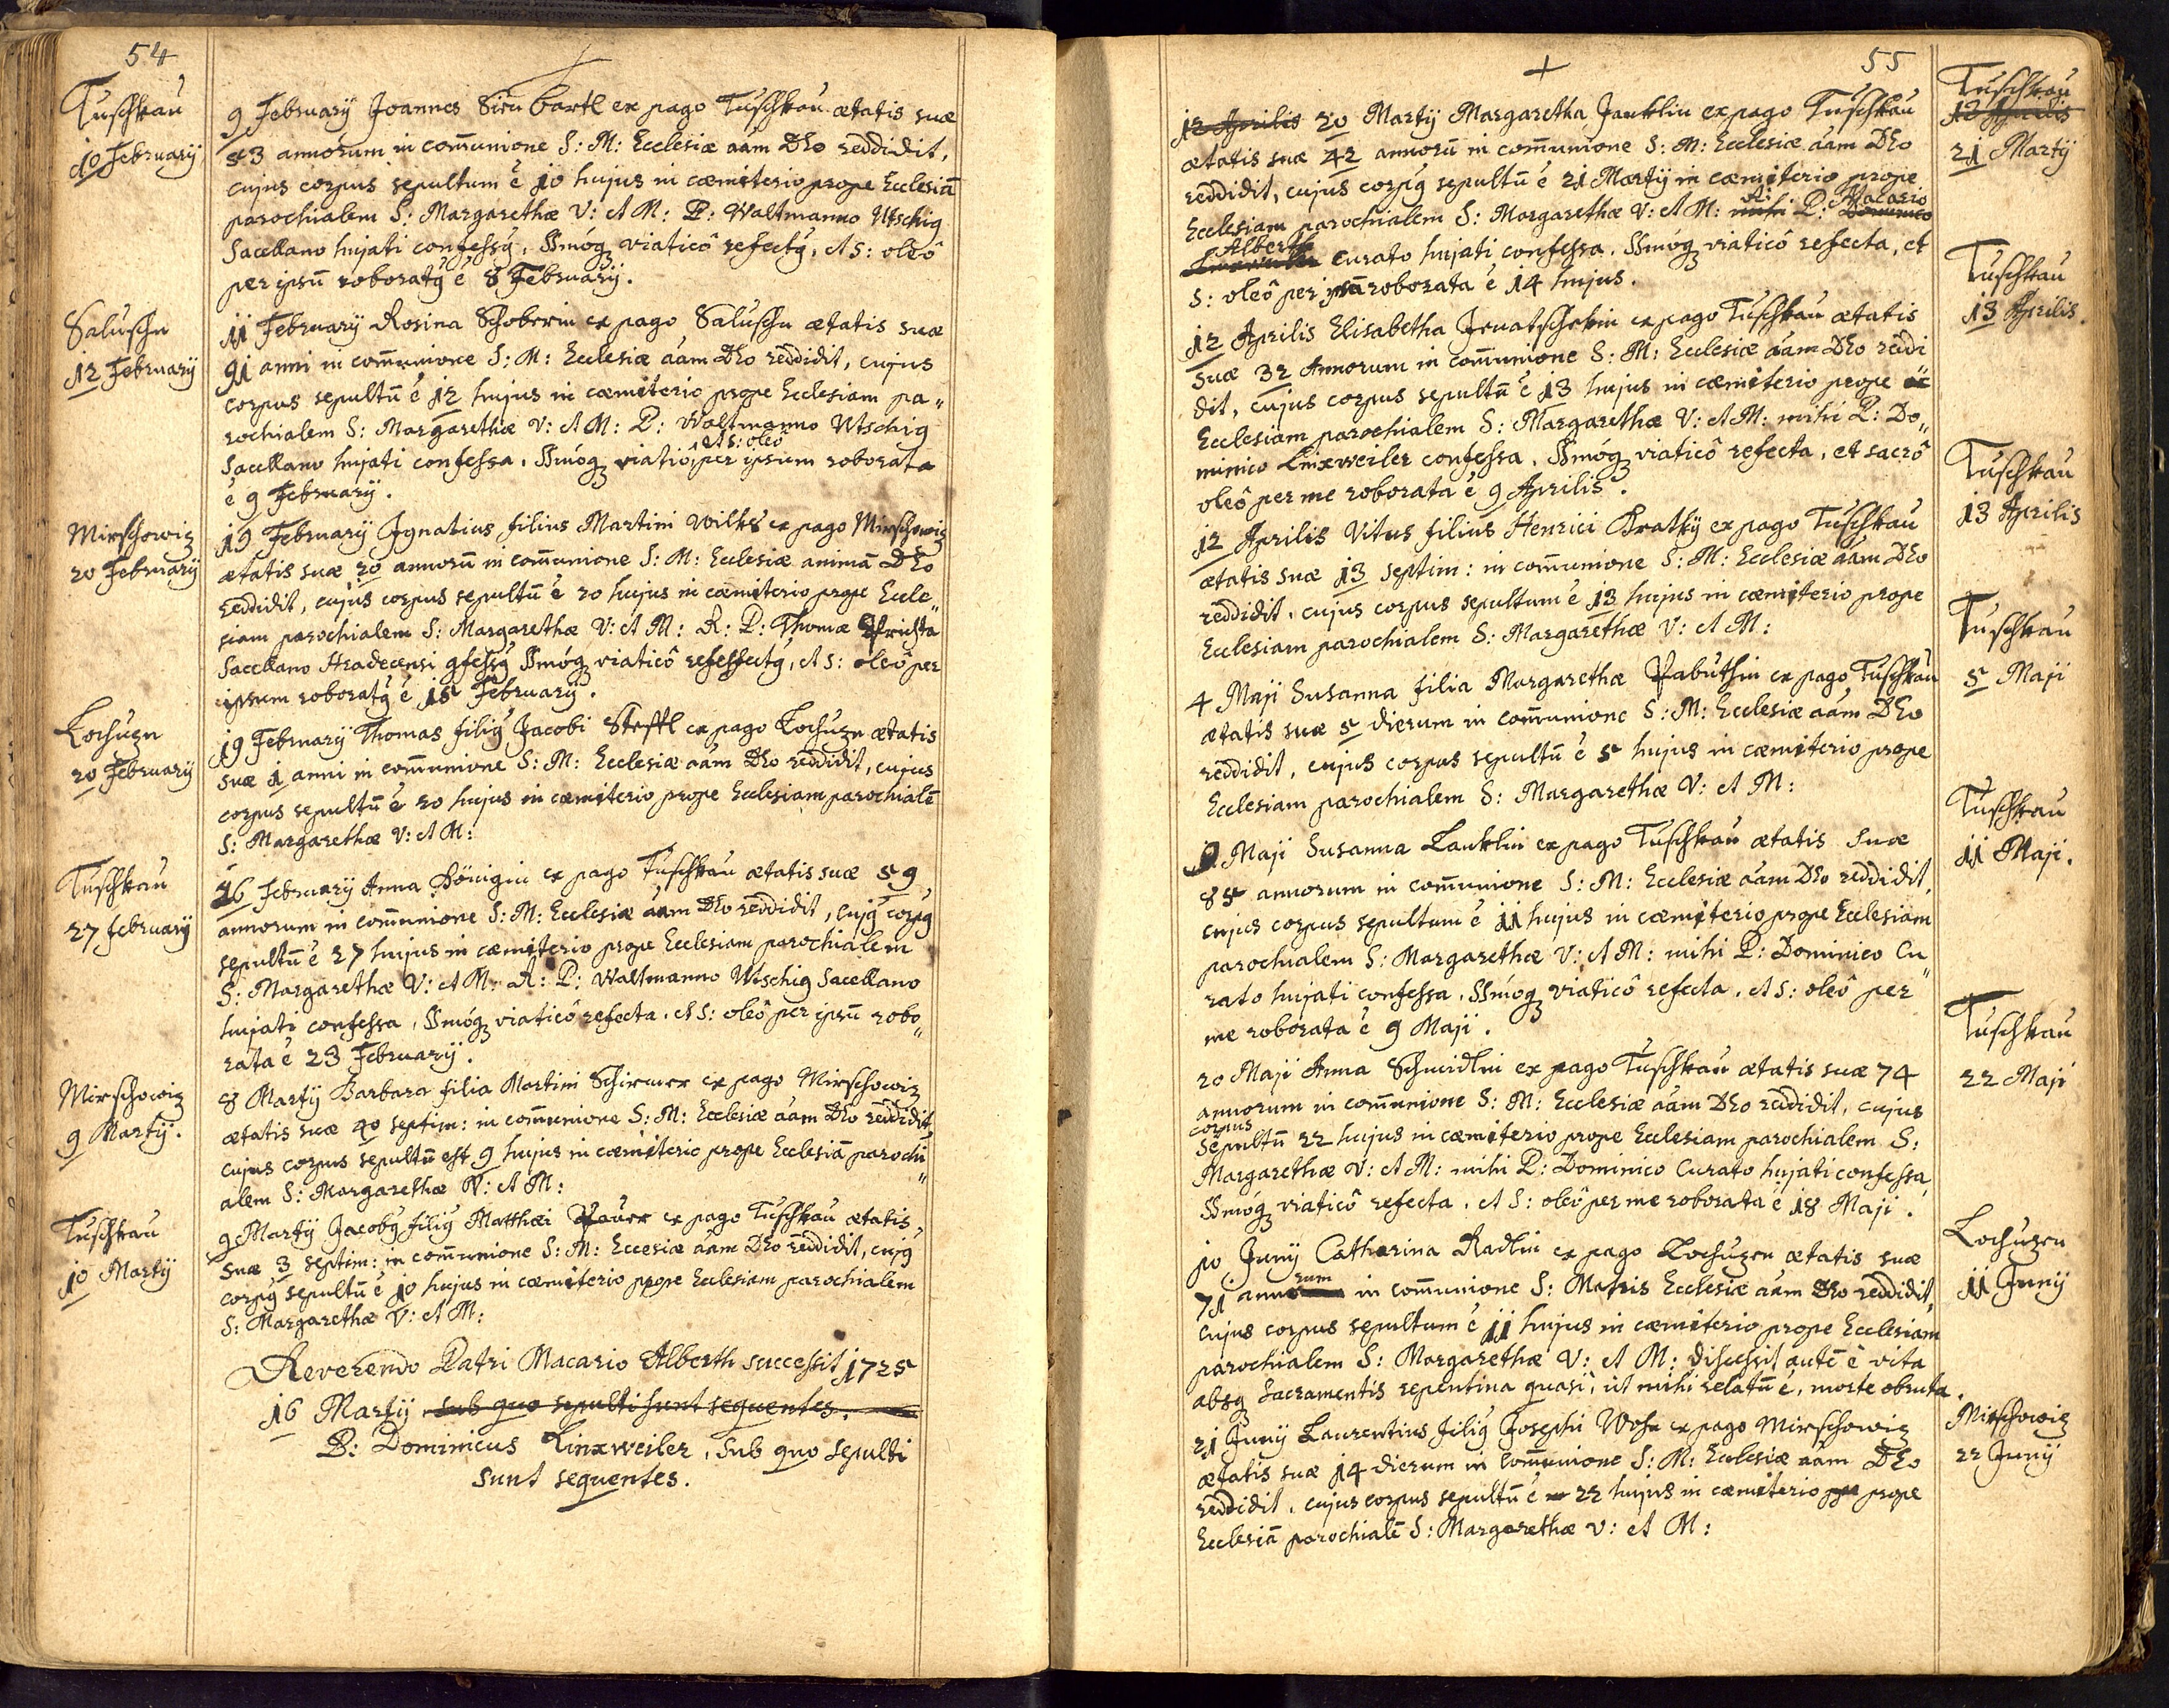 54
Tuschkau
10 February
9 February Joannes Simbartl ex pago Tuschkau ætatis suæ
53 annorum in com̄unione S: M: Ecclesiæ aám DEo reddidit,
cujus corpus sepultum é 10 hujus in cæmiterio prope Ecclesiā
parochialem S: Margarethæ V: et M: P: Waltmanno Utschig
Sacellano hujati confessꝰ, SSmóq viaticô refectꝰ, et S: oleô
per ipsū roboratꝰ é 8 February.
Saluschn
12 February
11 February Rosina Schoberin ex pago Saluschn ætatis suæ
91 anni in com̄unione S: M: Ecclesiæ aám DEo reddidit, cujus
corpus sepultū é 12 hujus in cæmiterio prope Ecclesiam pa„
rochialem S: Margarethæ V: et M: P: Waltmanno Utschig
et S: oleô
Sacellano hujati confessa, SSmóq viaticô, per ipsum roborata
é 9 February.
Mirschowiz
20 February
19 February Ignatius filius Martini Wilks ex pago Mirschowiz
ætatis suæ 20 annorū in com̄unione S: M: Ecclesiæ animā DEo
reddidit, cujus corpus sepultū é 20 hujus in cæmiterio prope Eccle„
siam parochialem S: Margarethæ V: et M: R: P: Thomæ
Sacellano Hradecensi gfessꝰ SSmóq viaticô refessectꝰ, et S: oleô per
ipsum roboratꝰ é 15 February.
Lochuzn
20 February
19 February Thomas filiꝰ Jacobi Steffl ex pago Lochuzn ætatis
suæ 1 anni in com̄unione S: M: Ecclesiæ aám DEo reddidit, cujus
corpus sepultū é 20 hujus in cæmiterio prope Ecclesiam parochialē
S: Margarethæ V: et M:
Tuschkau
27 february
26 February Anna Hönigin ex pago Tuschkau ætatis suæ 59
annorum in com̄unione S: M: Ecclesiæ aám DEo reddidit, cujꝰ corpꝰ
sepultū é 27 hujus in cæmiterio prope Ecclesiam parochialem
S: Margarethæ V: et M: R: P: Waltmanno Utschig Sacellano
hujati confessa, SSmóq viaticô refecta, et S: oleô per ipsū robo„
rata é 23 February.
Mirschowiz
9 Marty.
8 Marty Barbara filia Martini Schirmer ex pago Mirschowiz
ætatis suæ 40 septim: in com̄unione S: M: Ecclesiæ aám DEo reddidit,
cujus corpus sepultū est 9 hujus in cæmiterio prope Ecclesiā parochi„
alem S: Margarethæ V: et M:
Tuschkau
10 Marty
9 Marty Jacobꝰ filiꝰ Matthæi Pauer ex pago Tuschkau ætatis
suæ 3 septim: in com̄unione S: M: Eccesiæ aám DEo reddidit, cujꝰ
corpꝰ sepultū é 10 hujus in cæmiterio prope Ecclesiam parochialem
S: Margarethæ V: et M:
Reverendo Patri Macario Alberth successit 1725
16 Marty sub quo sepulti sunt sequentes.
P: Dominicus Linxweiler, sub quo sepulti
sunt sequentes.
55
Tuschkau
12 Aprilis
21 Marty
12 Aprilis 20 Marty Margaretha Jauklin ex pago Tuschkau
ætatis suæ 42 annorū in com̄unione S: M: Ecclesiæ aám DEo
reddidit, cujus corpꝰ sepultū é 21 Marty in cæmiterio prope
Macario
Ecclesiam parochialem S: Margarethæ V: et M: mihi P: Dominico
Alberth
Linxweiler Curato hujati confessa, SSmóq viaticô refecta, et
S: oleô per ipsū roborata é 14 hujus.
Tuschkau
13 Aprilis.
12 Aprilis Elisabetha ex pago Tuschkau ætatis
suæ 32 Annorum in com̄unione S: M: Ecclesiæ aám DEo reddi
dit, cujus corpus sepultū é 13 hujus in cæmiterio prope
Ecclesiam parochialem S: Margarethæ V: et M: mihi P: Do„
minico Linxweiler confessa, SSmóq viaticô refecta, et sacrô
oleô per me roborata é 9 Aprilis.
Tuschkau
13 Aprilis
12 Aprilis Vitus filius Henrici Kratky ex pago Tuschkau
ætatis suæ 13 septim: in com̄unione S: M: Ecclesiæ aám DEo
reddidit, cujus corpus sepultum é 13 hujus in cæmiterio prope
Ecclesiam parochialem S: Margarethæ V: et M:
Tuschkau
5 Maji
4 Maji Susanna filia Margarethæ Pabuthin ex pago Tuschkau
ætatis suæ 5 dierum in com̄unione S: M: Ecclesiæ aám DEo
reddidit, cujus corpus sepultū é 5 hujus in cæmiterio prope
Ecclesiam parochialem S: Margarethæ V: et M:
Tuschkau
11 Maji.
9 Maji Susanna Lauklin ex pago Tuschkau ætatis suæ
85 annorum in com̄unione S: M: Ecclesiæ aám DEo reddidit,
cujus corpus sepultum é 11 hujus in cæmiterio prope Ecclesiam
parochialem S: Margarethæ V: et M: mihi P: Dominico Cu„
rato hujati confessa, SSmóq viaticô refecta, et S: oleô per
me roborata é 9 Maji.
Tuschkau
22 Maji
20 Maji Anna Schmidlin ex pago Tuschkau ætatis suæ 74
annorum in com̄unione S: M: Ecclesiæ aám DEo reddidit, cujus
corpus
sepultū 22 hujus in cæmiterio prope Ecclesiam parochialem S:
Margarethæ V: et M: mihi P: Dominico Curato hujati confessa,
SSmóq viaticô refecta, et S: oleô per me roborata é 18 Maji.
Lochuzen
11 Juny
10 Juny Catharina Radlin ex pago Lochuzen ætatis suæ
71 annorum in com̄unione S: Matris Ecclesiæ aám DEo reddidit,
cujus corpus sepultum é 11 hujus in cæmiterio prope Ecclesiam
parochialem S: Margarethæ V: et M: discessit autē é vita
absq Sacramentis repentina quasi, ut mihi relatū é, morte obruta.
Mirschowiz
22 Juny
21 Juny Laurentius filiꝰ Josephi ex pago Mirschowiz
ætatis suæ 14 dierum in com̄unione S: M: Ecclesiæ aám DEo
reddidit, cujus corpus sepultū é 22 hujus in cæmiterio prope
Ecclesiā parochialē S: Margarethæ V: et M: